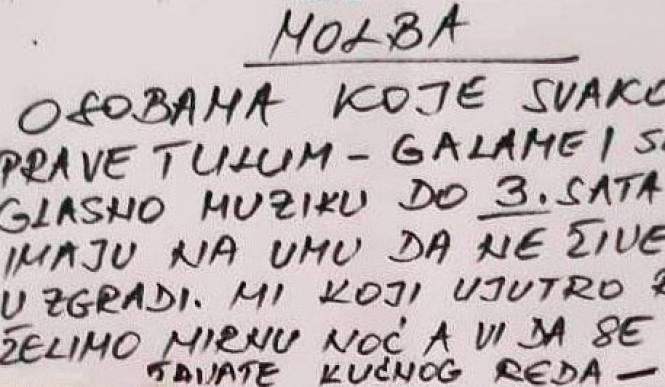 MOLBA
OSOBAMA KOJE SVAKO
PRAVE TULUM - GALAME I S
GLASNO MUZIKU DO 3. SATA
IMAJU NA UMU DA NE ŽIVE
U ZGRADI. MI KOJI UJUTRO
ŽELIMO MIRNU NOĆ A VI DA SE
KUĆNOG REDA —